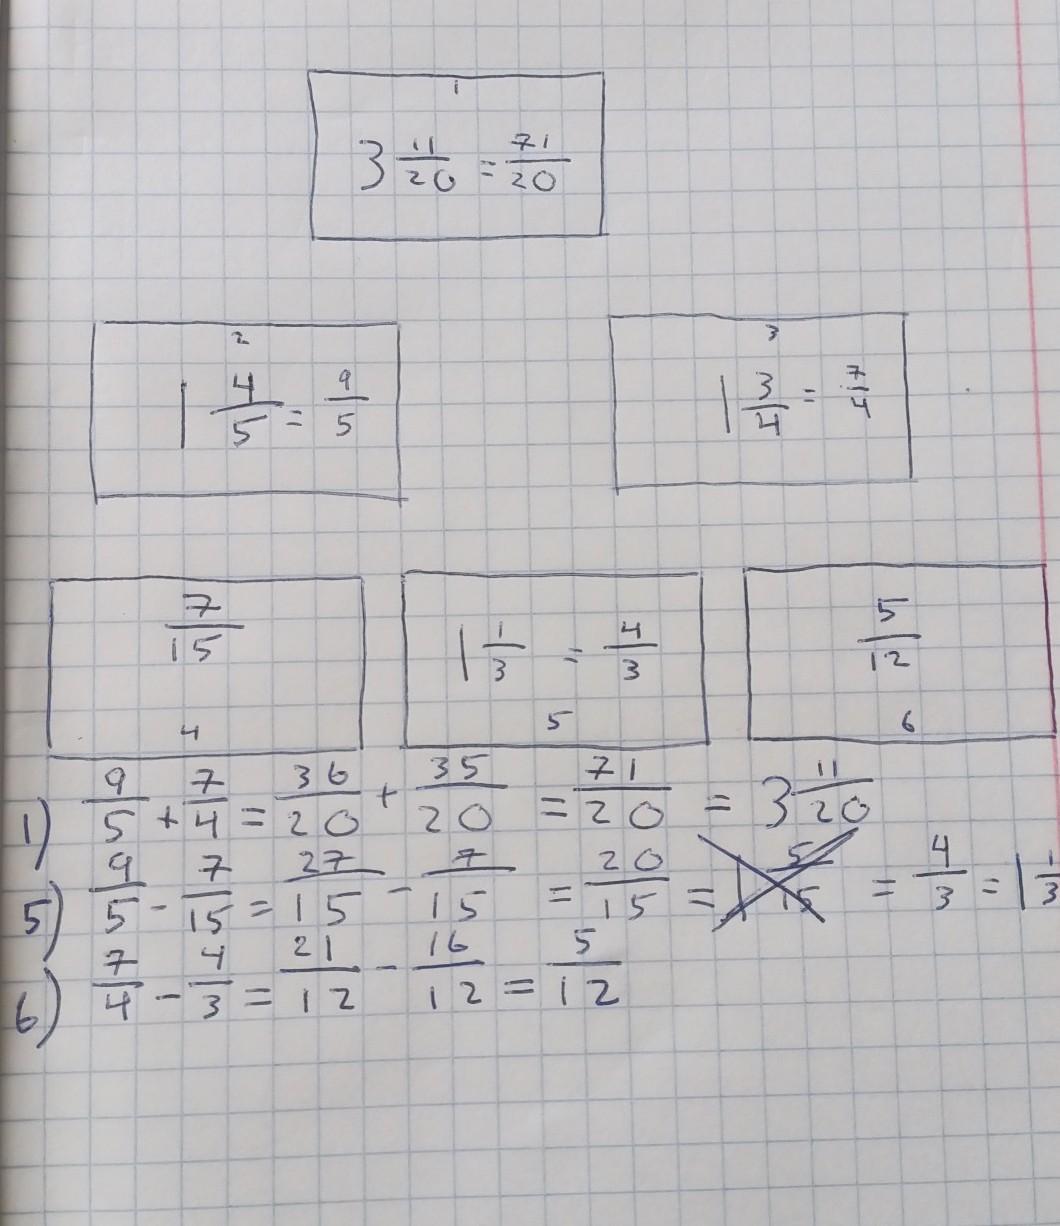 1
3 11/20 = 71/20
2
1 4/5 = 9/5
3
1 3/4 = 7/4
7/15
4
1 1/3 = 4/3
5
5/12
6
1) 9/5 + 7/4 = 36/20 + 35/20 = 71/20 = 3 11/20
5) 9/5 - 7/15 = 27/15 - 7/15 = 20/15 = 1 5/15 = 4/3 = 1 1/3
6) 7/4 - 4/3 = 21/12 - 16/12 = 5/12